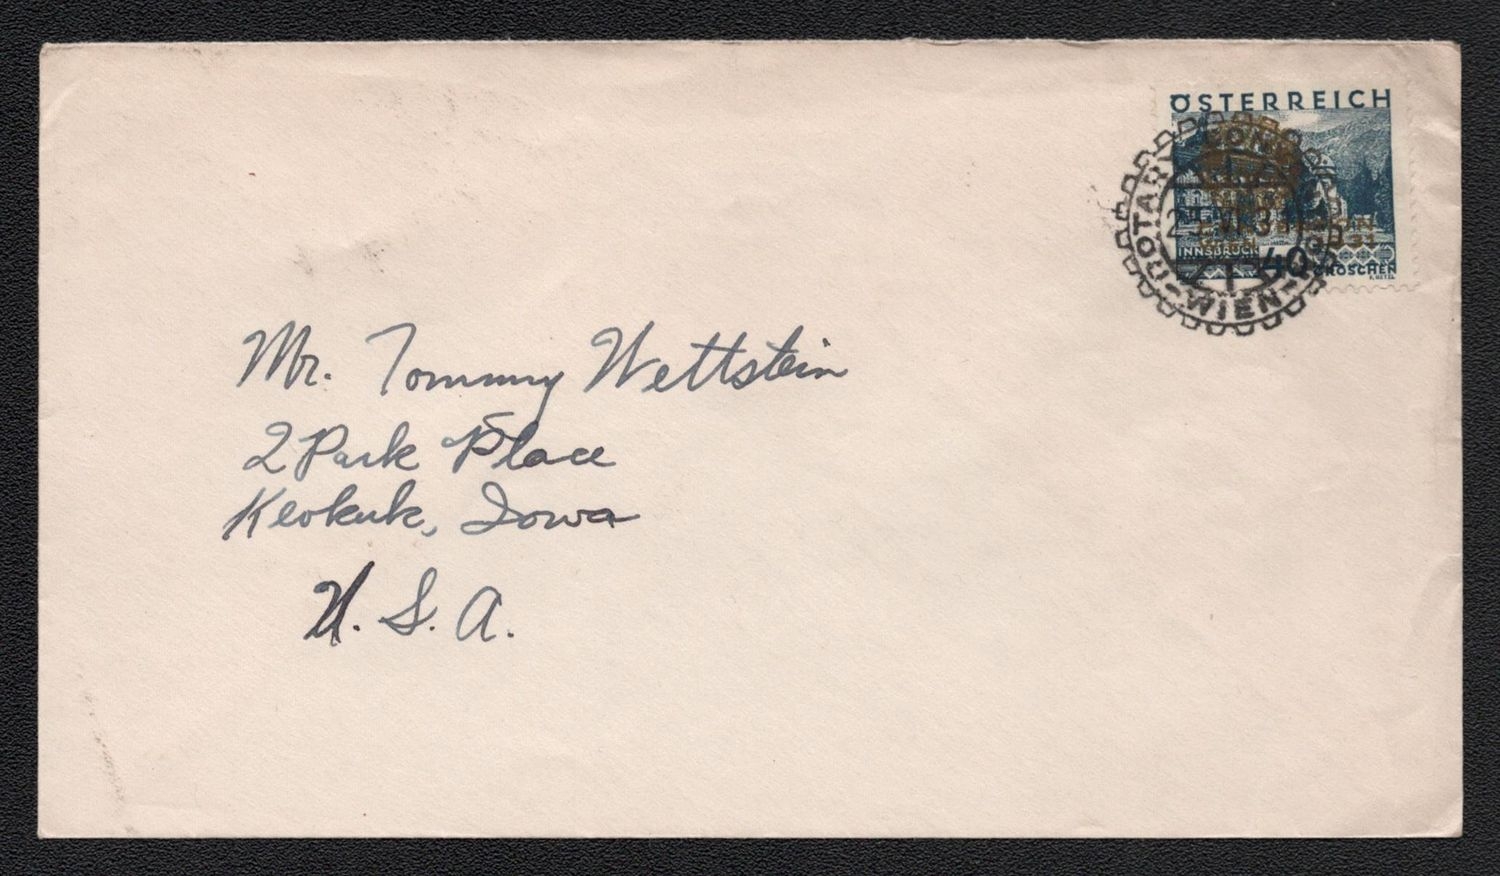 ÖSTERREICH
ROTARY
INNSBRUCK 40 GROSCHEN
WIEN
Mr. Tommy Wettstein
2 Park Place
Keokuk, Iowa
U. S. A.